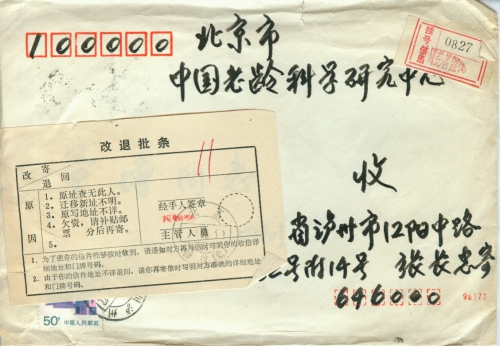 100000
北京市
中国老龄科学研究中心
挂号信函
0827
改退批条
改寄
退回
原因
1、原址查无此人。
2、迁移新址不明。
3、原写地址不详。
4、欠资，请补贴邮票 分后再寄。
5、
经手人签章
主管人员
1、为了使你的信件能够按时收到，请通知对方再写信时写明你的收信详细地址和门牌号码。
2、由于你的信件地址不详退回，请你再寄信时写明对方准确的详细地址和门牌号码。
11
收
省泸州市江阳中路
号附14号 张长
646000
98173
50分 中国人民邮政
泸州